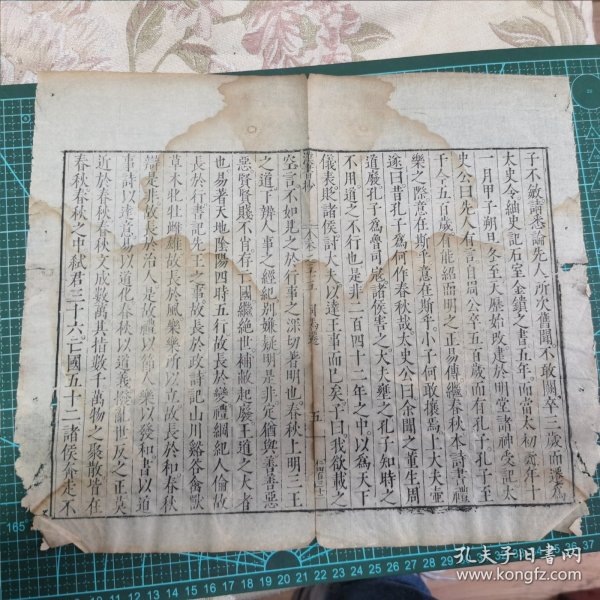 子不敏請悉論先人所次舊聞不敢闕卒三歲而遷為
太史令紬史記石室金鐀之書五年而當太初元年十
一月甲子朔旦冬至天歷始改建於明堂諸神受記太
史公曰先人有言自周公卒五百歲而有孔子孔子至
于今五百歲有能紹而明之正易傳繼春秋本詩書禮
樂之際意在斯乎意在斯乎小子何敢攘焉上大夫壷
遂曰昔孔子為何作春秋哉太史公曰余聞之董生周
道廢孔子為魯司寇諸侯害之大夫壅之孔子知時之
不用道之不行也是非二百四十二年之中以為天下
儀表貶諸侯討大夫以達王事而已矣子曰我欲載之
漢書抄 五
空言不如見之於行事之深切著明也春秋上明三王
之道下辨人事之經紀別嫌疑明是非定猶與善善惡
惡賢賢賤不肖存亡國繼絕世補敝起廢王道之大者
也易著天地陰陽四時五行故長於變禮綱紀人倫故
長於行書記先王之事故長於政詩記山川谿谷禽獸
草木牝牡雌雄故長於風樂樂所以立故長於和春秋
辯是非故長於治人是故禮以節人樂以發和書以道
事詩以達意易以道化春秋以道義撥亂世反之正莫
近於春秋春秋文成數萬其指數千萬物之聚散皆在
春秋春秋之中弒君三十六亡國五十二諸侯奔走不
孔夫子旧书网
www.kongfz.com